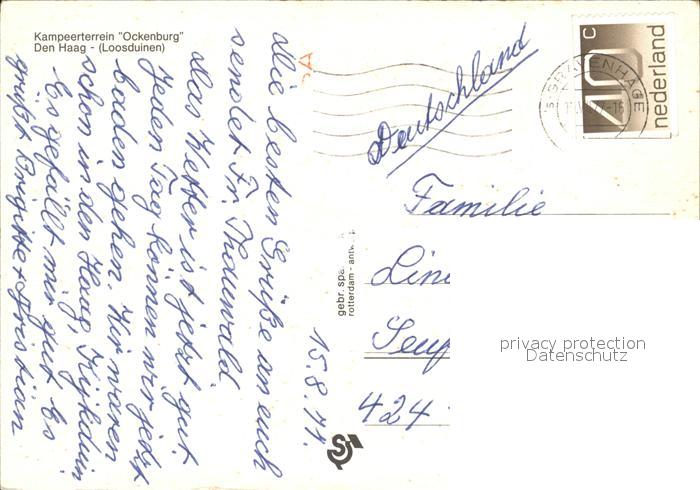 Kampeerterrein "Ockenburg"
Den Haag - (Loosduinen)
15.8.77.
Die besten Grüße an euch
sendet Fr. Thauwald
das Wetter ist jetzt gut.
Jeden Tag können wir jetzt
baden gehen. Wir waren
schon in den Haag, Kijkduin
Es gefällt mir gut Es
grüßt Brigitte + Christian
gebr. spa
rotterdam - antw
Deutschland
Familie
424
'S-GRAVENHAGE
40 c
nederland
privacy protection
Datenschutz